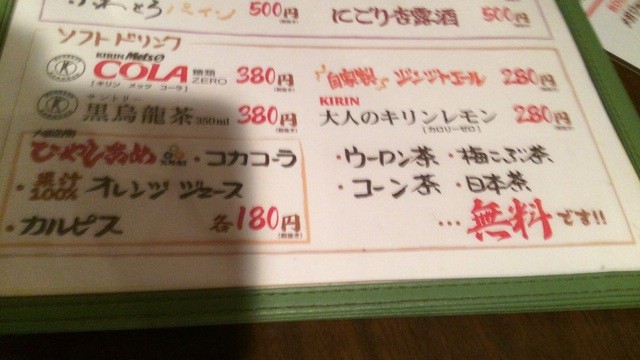 ふわとろパイン 500円
にごり杏露酒 500円
ソフトドリンク
KIRIN Mets
COLA 糖類ZERO 380円
[キリン メッツ コーラ]
サントリー
黒烏龍茶 350ml 380円
自家製 ジンジャエール 280円
KIRIN
大人のキリンレモン 280円
[カロリーゼロ]
ひやしあめ ・コカコーラ
・果汁100% オレンジジュース
・カルピス 各180円
・ウーロン茶 ・梅こぶ茶
・コーン茶 ・日本茶
…無料です!!